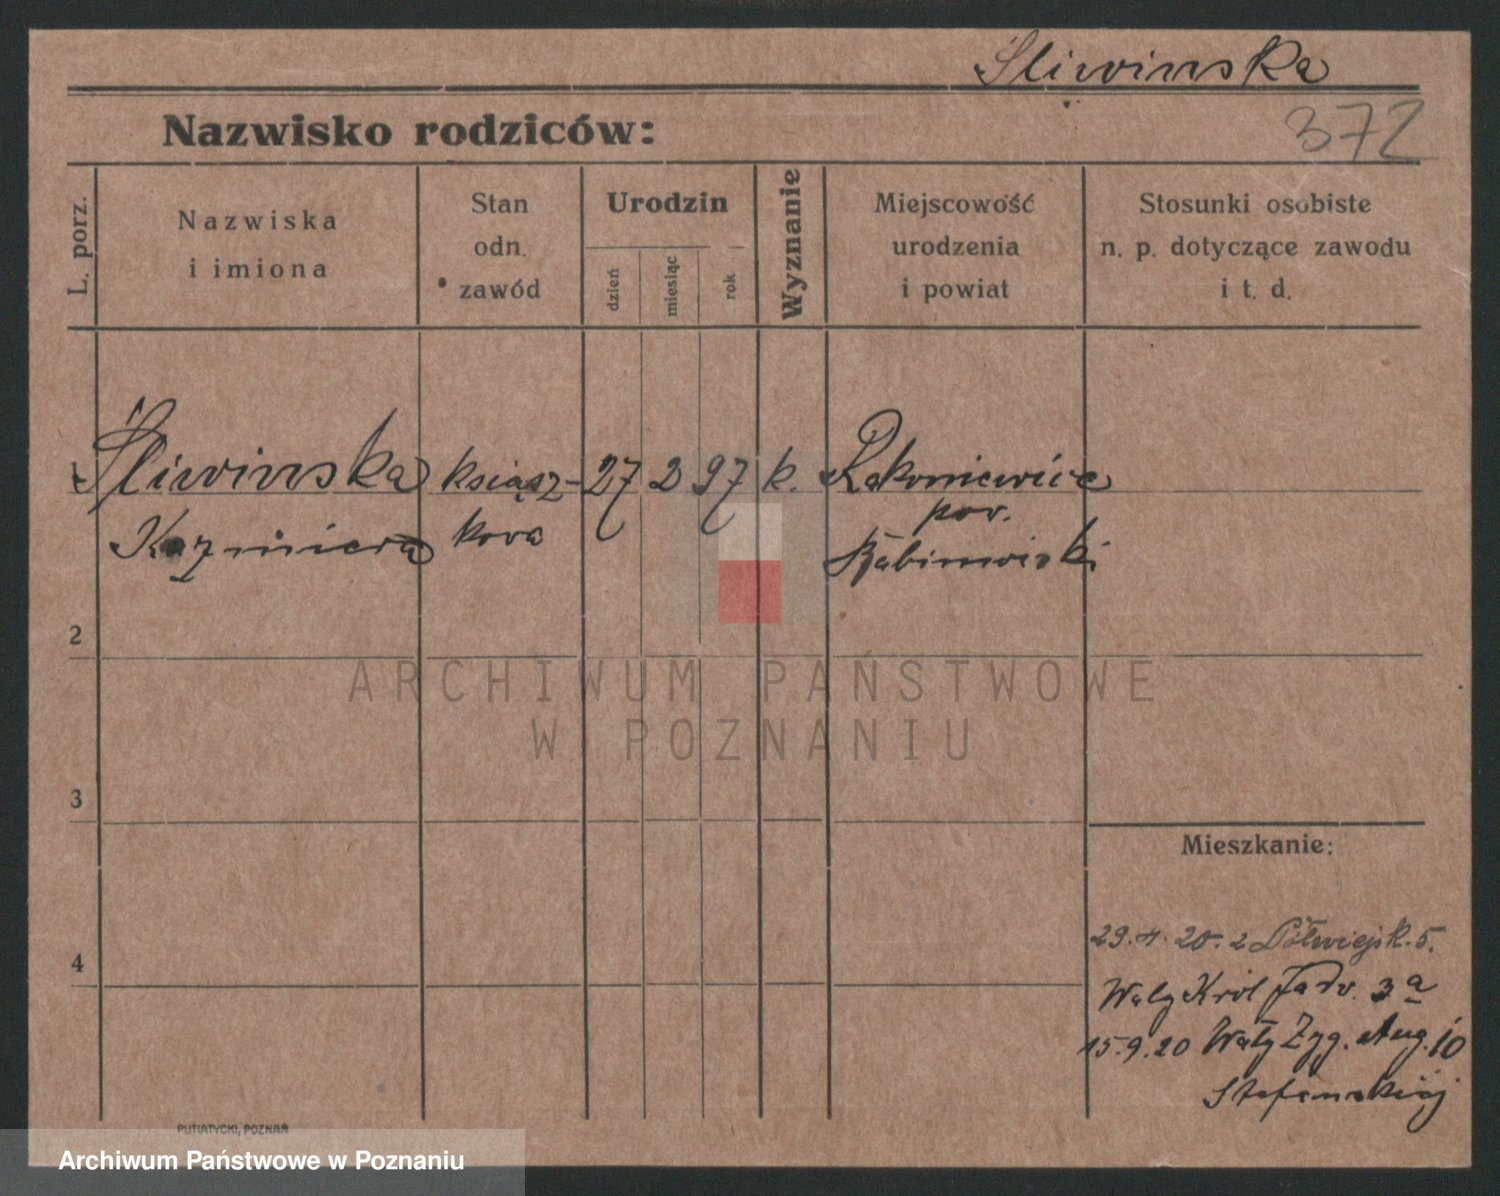 Śliwinska
372
Nazwisko rodziców:
L. porz.
Nazwiska
i imiona
Stan
odn.
zawód
Urodzin
dzień
miesiąc
rok
Wyznanie
Miejscowość
urodzenia
i powiat
Stosunki osobiste
n. p. dotyczące zawodu
i t. d.
1 Śliwinska książ- 27 2 97 k. Rakoniewice
Kazmiera kowa pow.
Babimoiski
2
ARCHIWUM PAŃSTWOWE
W POZNANIU
3
Mieszkanie:
4
29.4.20. z Półwiejsk. 5.
Wały Król Jadw. 3a
15.9.20 Wały Zyg. Aug. 10
PUTIATYCKI, POZNAŃ
Archiwum Państwowe w Poznaniu